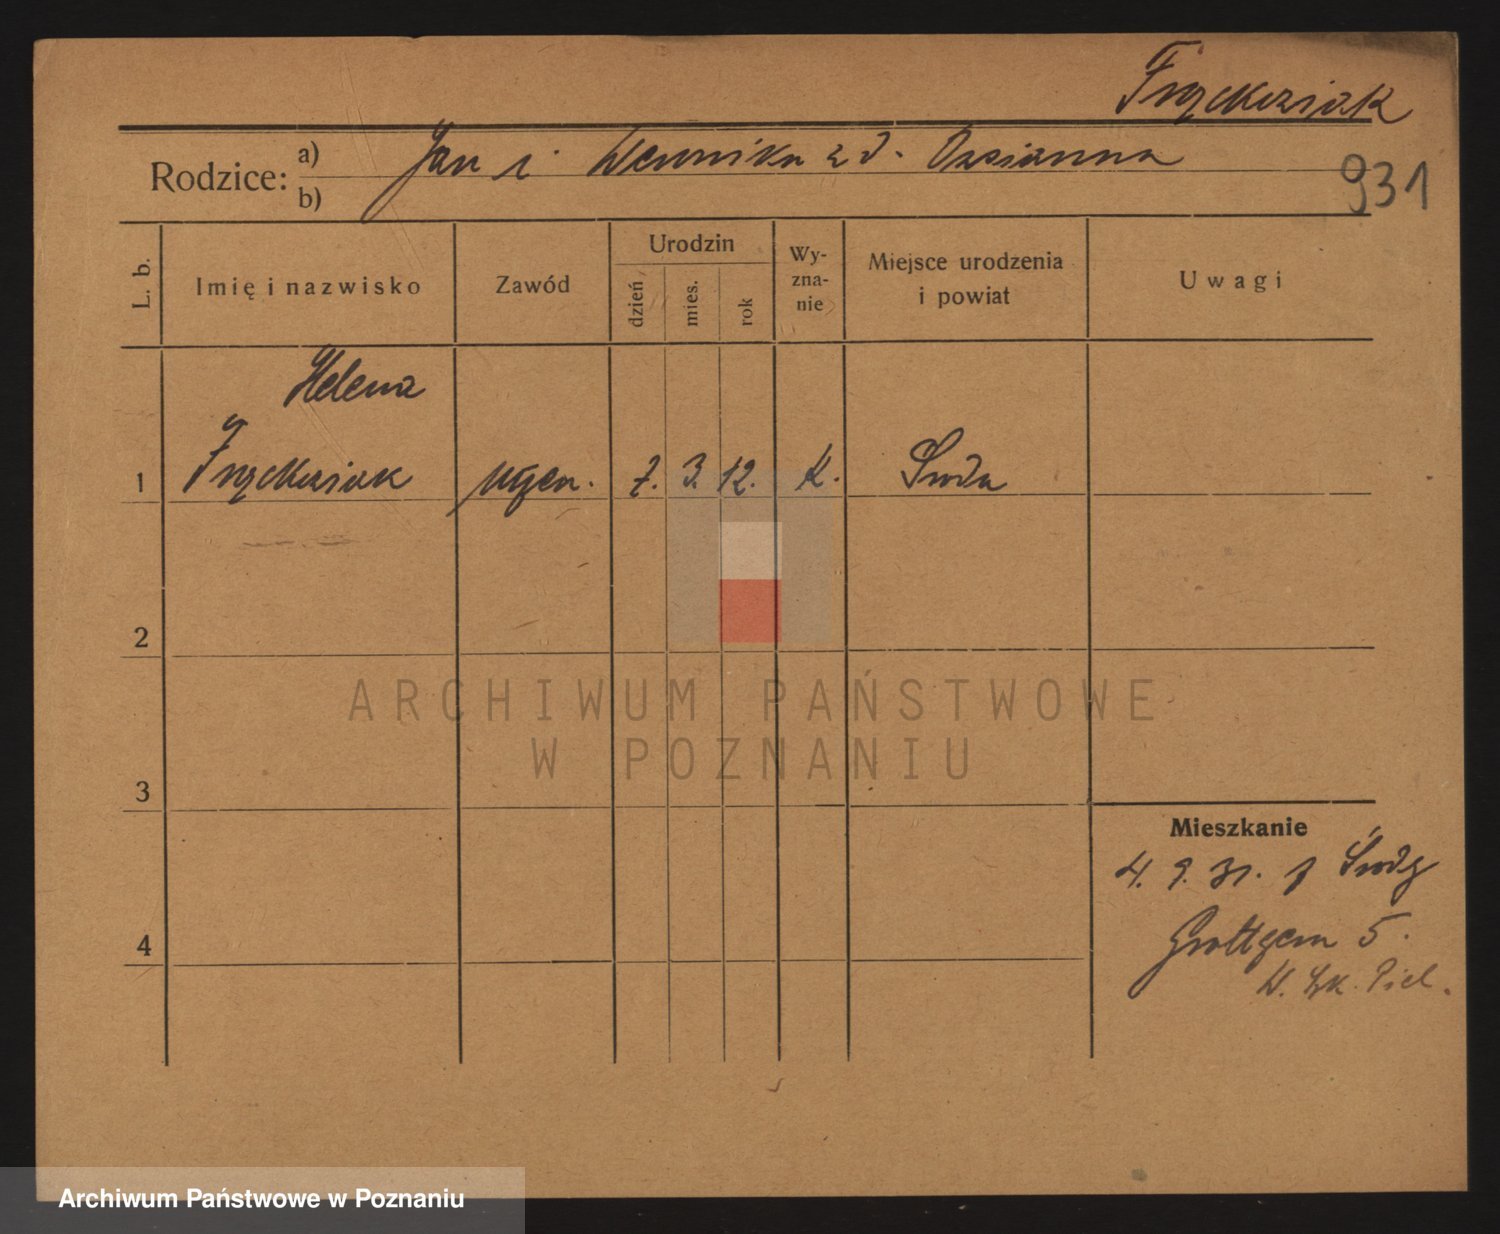 Frąckowiak
Rodzice: a) Jan i Weronika zd.
b)
931
L. b.
Imię i nazwisko
Zawód
Urodzin
dzień
mies.
rok
Wy-
zna-
nie
Miejsce urodzenia
i powiat
Uwagi
Helena
1 Frąckowiak uczen. 7. 3. 12. K. Środa
2
3
4
Mieszkanie
4. 9. 31. z Środy
Grottgera 5.
ARCHIWUM PAŃSTWOWE
W POZNANIU
Archiwum Państwowe w Poznaniu